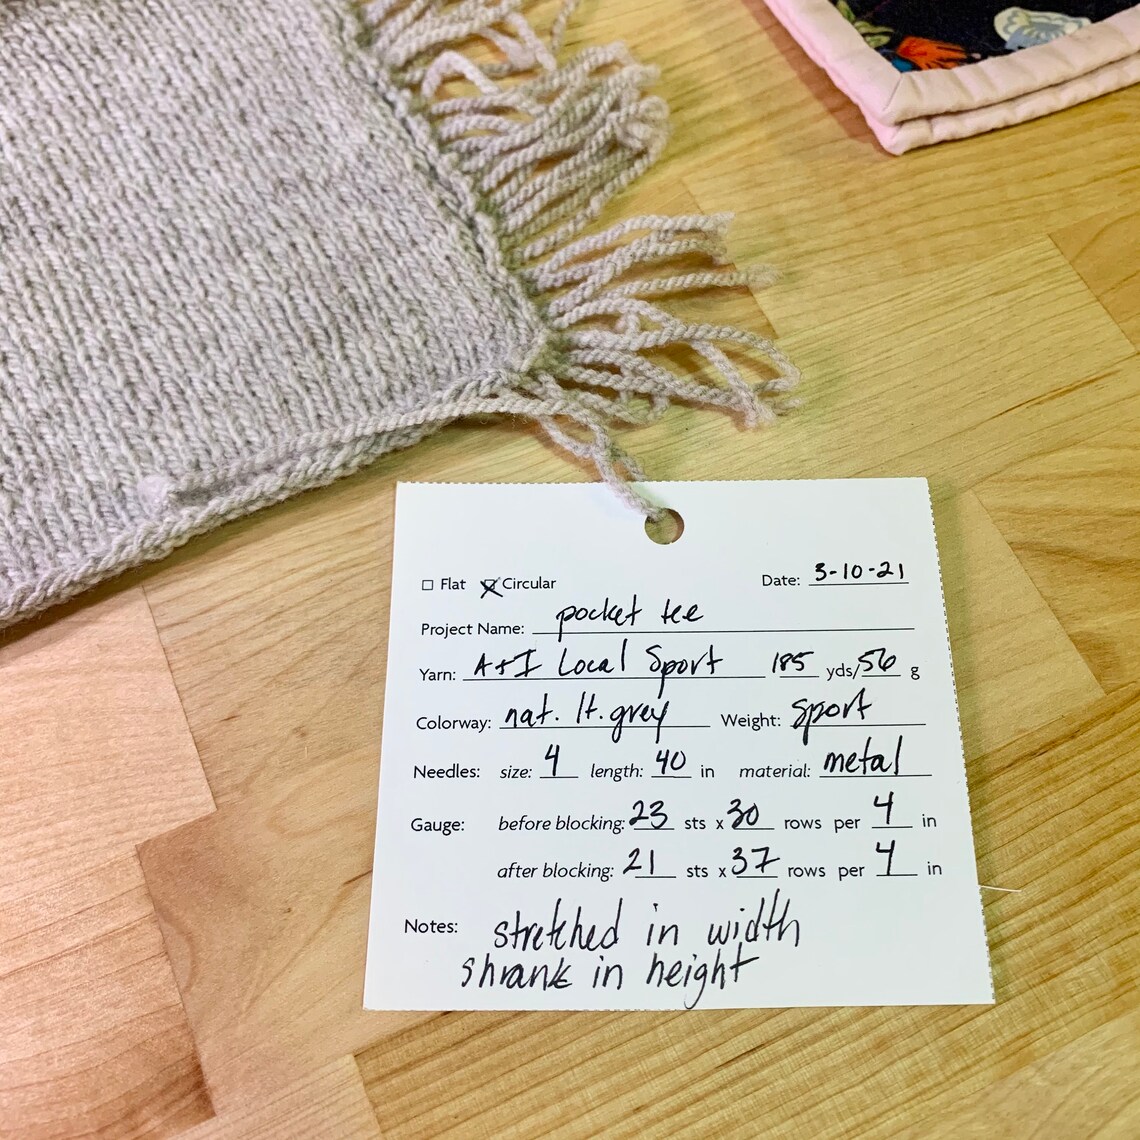 Flat Circular Date: 3-10-21
Project Name: pocket tee
Yarn: A+I Local Sport 185 yds/56 g
Colorway: nat. lt. grey Weight: sport
Needles: size: 4 length: 40 in material: metal
Gauge: before blocking: 23 sts x 30 rows per 4 in
after blocking: 21 sts x 37 rows per 4 in
Notes: stretched in width
shrank in height